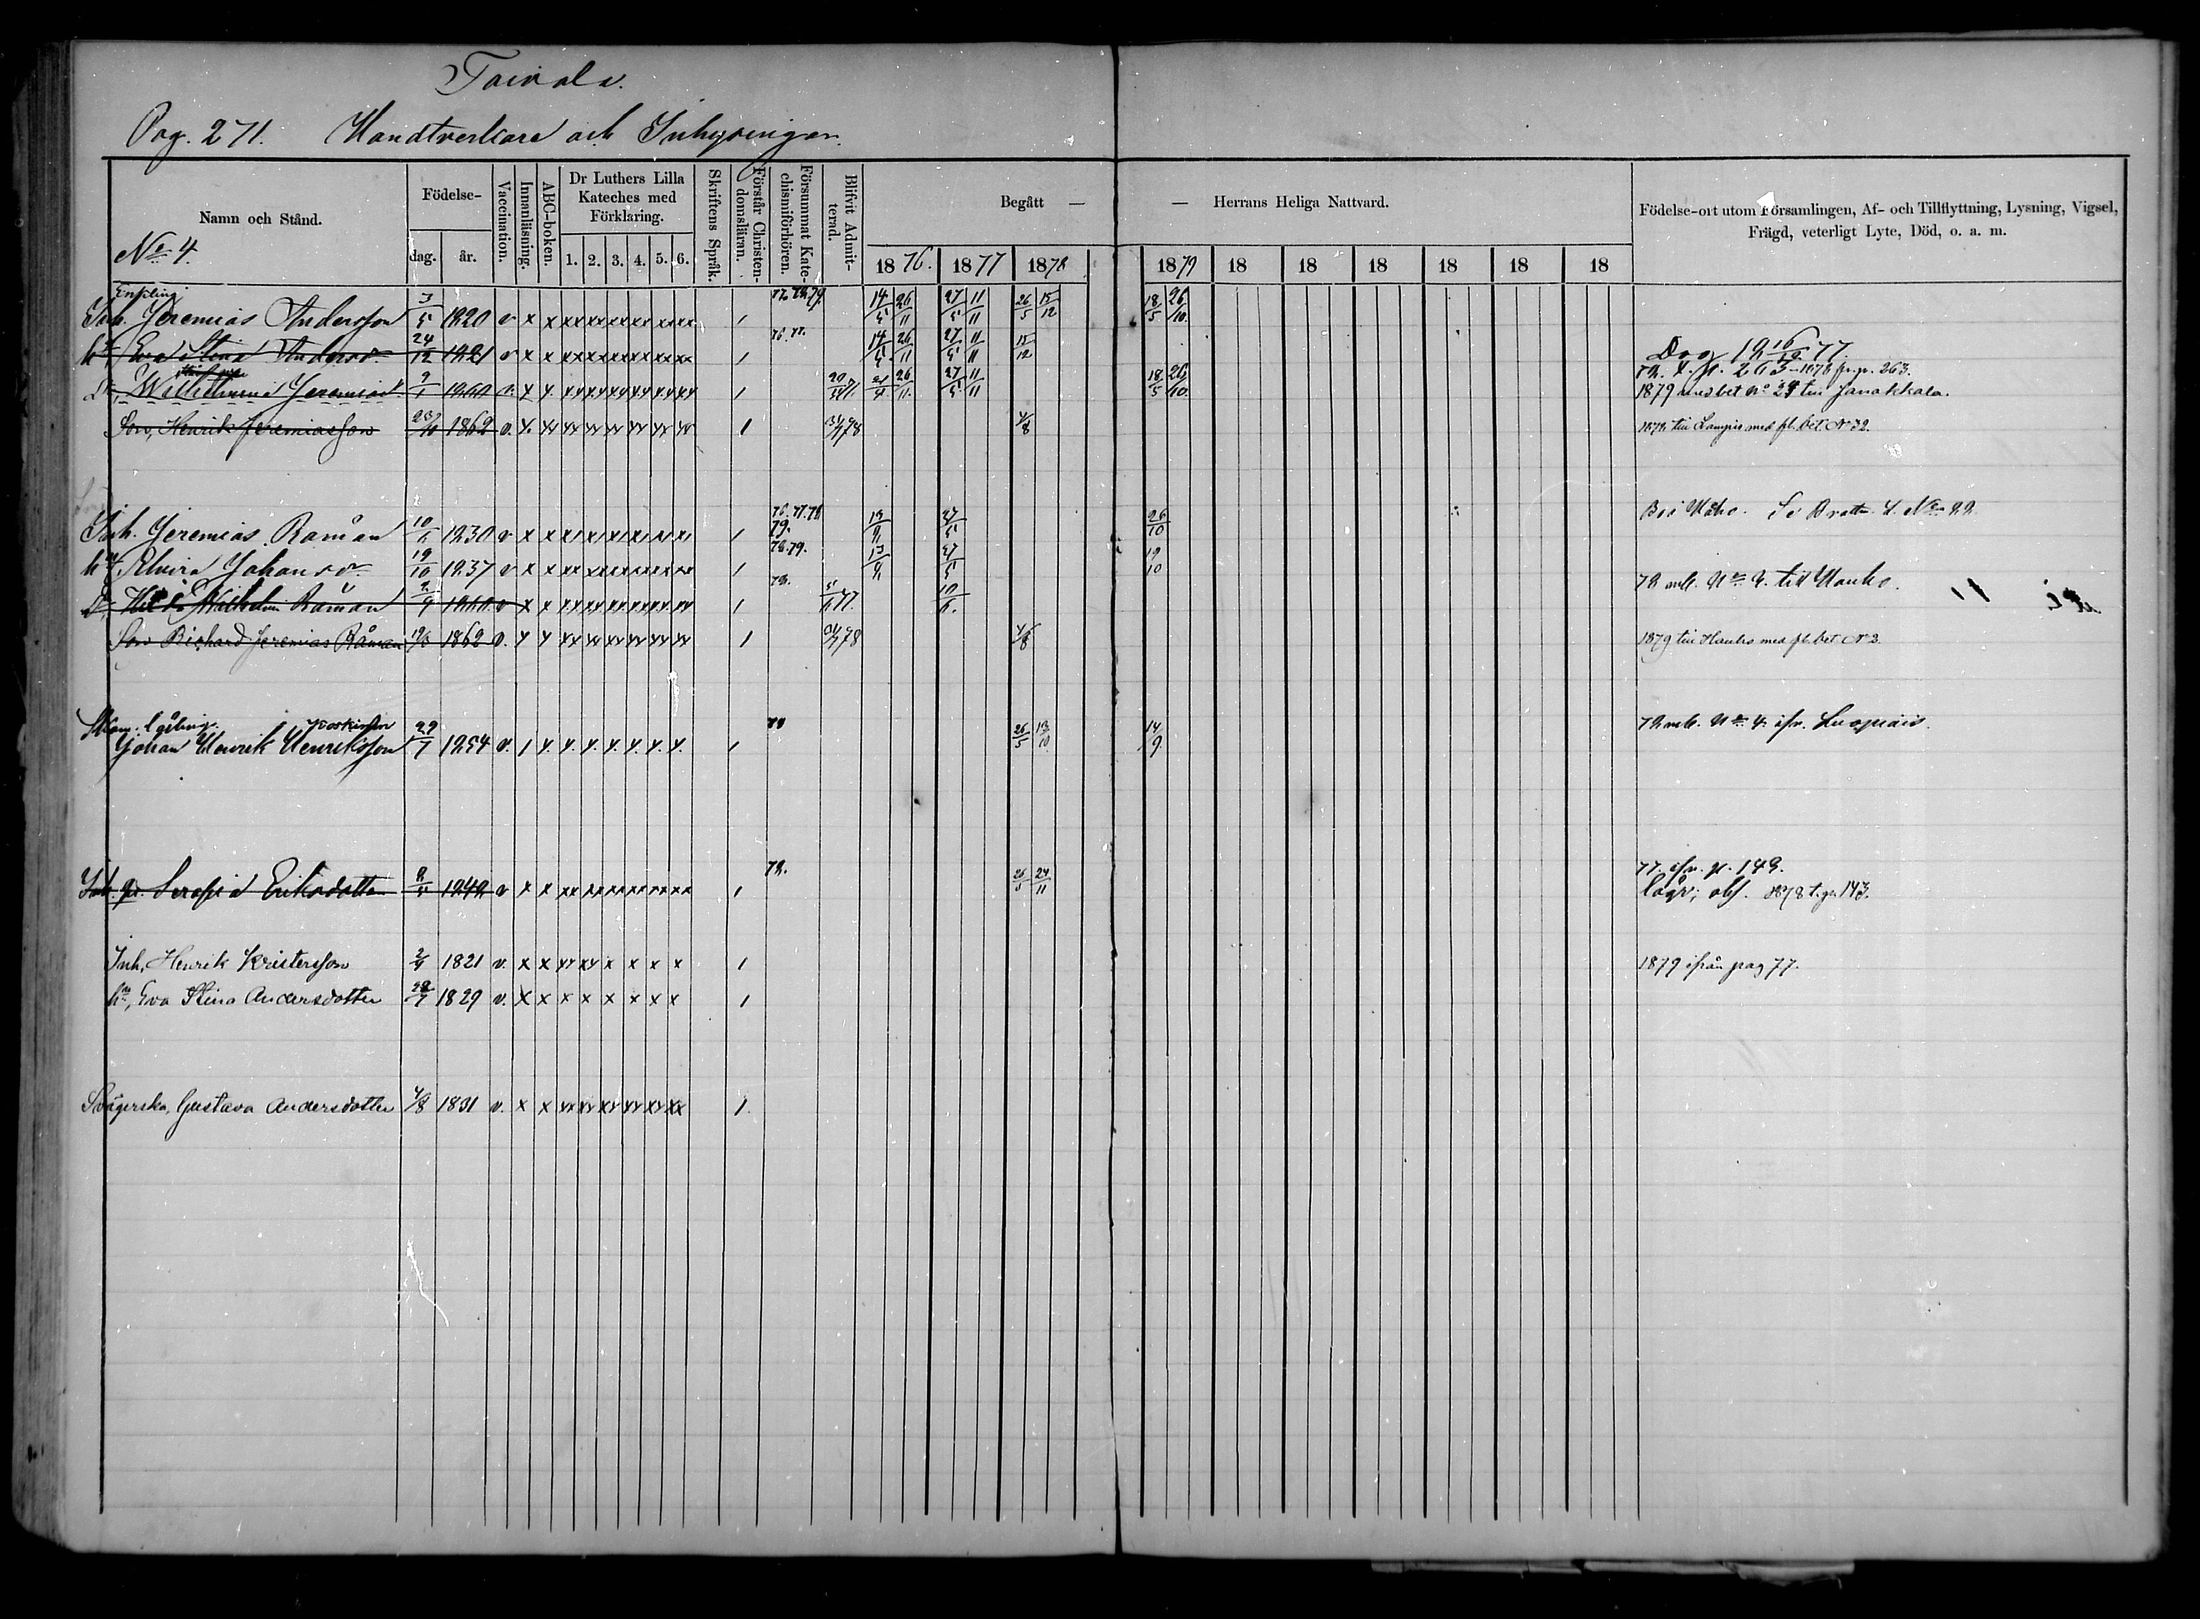 Toivola.
Pag. 271. Handtverkare och Inhysingar.
Namn och Stånd.
No 4.
Födelse-
dag. år.
Vaccination.
Innanläsning.
ABC-boken.
Dr Luthers Lilla Kateches med Förklaring.
1. 2. 3. 4. 5. 6.
Skriftens Språk.
Förstår Christendomsläran.
Försummat Katechismiförhören.
Blifvit Admitterad.
Begått — — Herrans Heliga Nattvard.
1876. 1877 1878 1879 18 18 18 18 18 18
Födelse-ort utom Församlingen, Af- och Tillflyttning, Lysning, Vigsel, Frägd, veterligt Lyte, Död, o. a. m.
Enkling
Inh. Jeremias Andersson 3/5 1820 v x x xx xx xx xx xx xx / 77. 78. 79. 14/5 26/11 27/5 11/11 26/5 15/12 18/5 26/10
hu Eva Stina Andersdr 24/12 1821 v x x xx xx xx xx xx xx / 76. 77. 14/5 26/11 27/5 11/11 15/12 Dog 18 16/12 77.
Dr, Wilhelmina Jeremiad. 9/1 1860 v. x x xx xx xx xx xx xx / 26/11 27/5 11/11 18/5 26/10 78. t. p. 263 1878 fr. p. 263.
1879 med bet No 24 till Janakkala.
Son, Henrik Jeremiasson 1862 v. x. xx xx xx xx xx xx xx / 78 4/8 1878 till Lampis med fl. bet. No 32.
Inh. Jeremias Råman 10/ 1830 v x x xx xx xx xx xx xx / 76. 77. 78 79. 13/9 27/5 26/10
hu Elvira Johansdr 19/10 1837 v x x xx xx xx xx xx xx / 78. 79. 13/9 27/5 19/10
Dr Wilhelmi Råman 2/9 1860 v x x xx xx xx xx xx xx / 78. 77. 10/6. 78 mb. No 4. till Hauho.
Son Richard Jeremias Råman 19/3 1862 v. x x xx xx xx xx xx xx / 78 4/8 1879 till Hauho med fl. bet No 2.
Skom. lärling.
Johan Henrik Henriksson 27/7 1854 v. / x. x. x. x. x. x. x. / 79 26/5 13/10 14/9 78 mb. No 4. ifr. Luopiois.
Inh. qv. Serafia Eriksdotter 8/5 1842 v x x xx xx xx xx xx xx / 78. 26/5 24/11 77. ifr. p. 143.
lägr; abs. 1878 t. p. 143.
Inh, Henrik Kristersson 2/9 1821 v. x x xx xx x x x x / 1879 ifrån pag 77.
hu, Eva Stina Andersdotter 28/7 1829 v. x x x x x x x x /
Svägerska, Gustava Andersdotter 4/8 1831 v. x x xx xx xx xx xx xx /